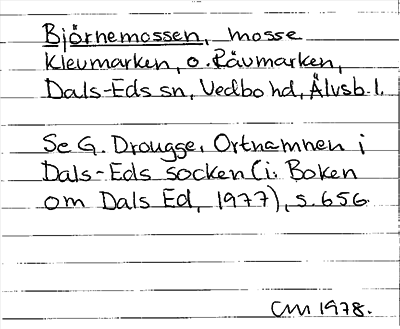 Björnemossen, mosse
Klevmarken, o. Rävmarken,
Dals-Eds sn, Vedbo hd, Älvsb. l.
Se G. Drougge, Ortnamnen i
Dals-Eds socken (i: Boken
om Dals Ed, 1977), s. 656.
CM 1978.